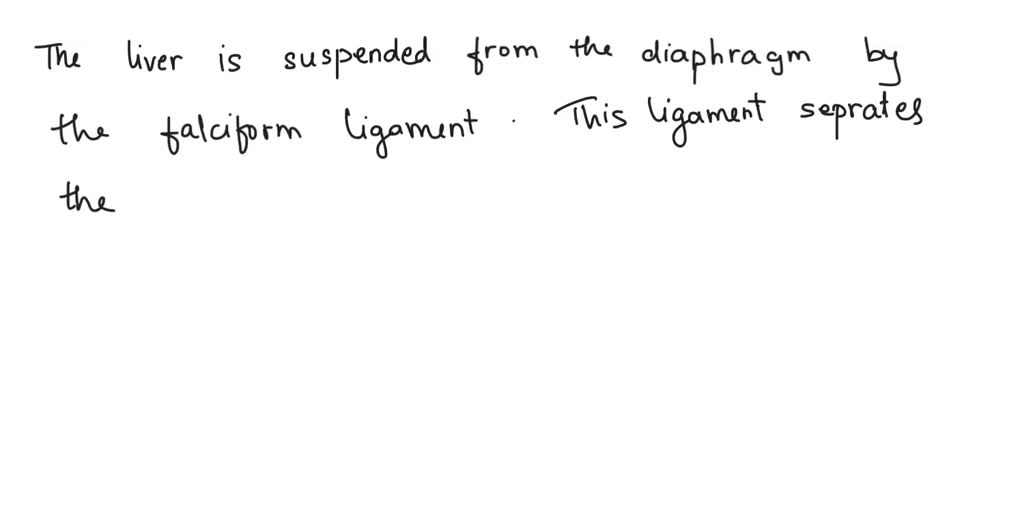 The liver is suspended from the diaphragm by
the falciform ligament. This ligament seprates
the